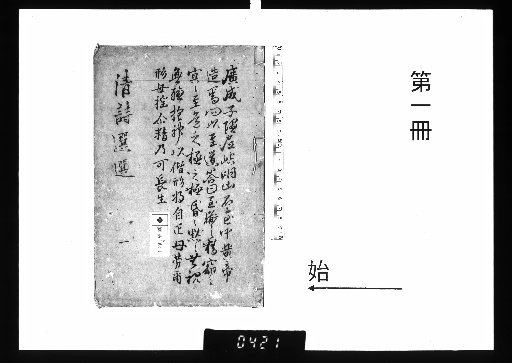 第一冊
始
廣成子隱居崆峒山石室中黃帝
造焉問以至道答曰至道之精窈〻
冥〻至道之極〻昏〻默〻無視
無聽抱神以靜形將自正毋勞爾
形毋搖爾精乃可長生
清詩選選
一
0421